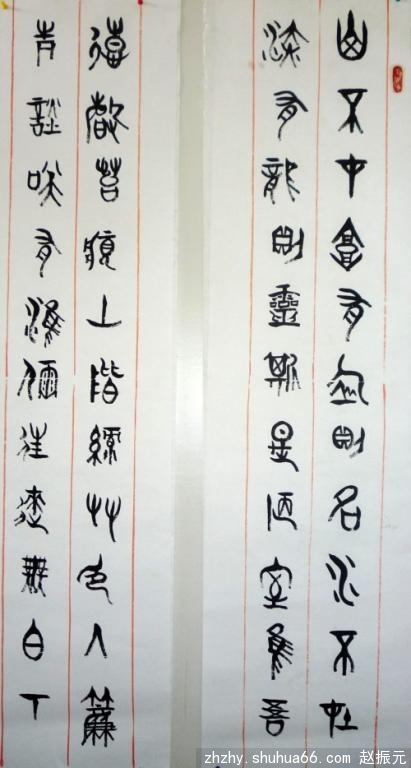 山不在高有仙則名水不在
深有龍則靈斯是陋室惟吾
德馨苔痕上階綠艸色入簾
青談笑有鴻儒往來無白丁
zhzhy.shuhua66.com 赵振元